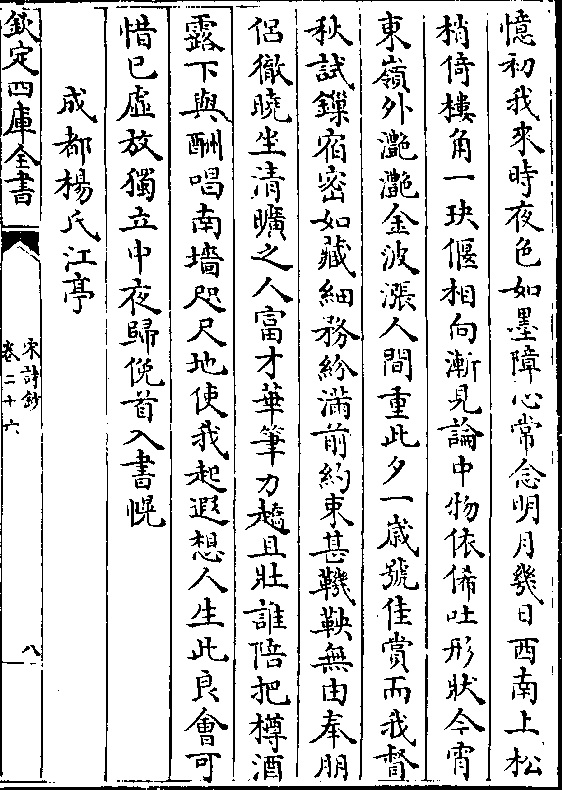 憶初我來時夜色如墨障心常念明月幾日西南上松
梢倚樓角一玦偃相向漸見論中物依俙吐形狀今宵
東嶺外灔灔金波漲人間重此夕一歲號佳賞而我督
秋試鏁宿密如藏細務紛滿前約束甚鞿鞅無由奉朋
侣徹曉坐清曠之人富才華筆力趫且壯誰陪把樽酒
露下與酬唱南墻咫尺地使我起遐想人生此良會可
惜已虛放獨立中夜歸俛首入書幌
成都楊氏江亭
欽定四庫全書
宋詩鈔
卷二十六
八